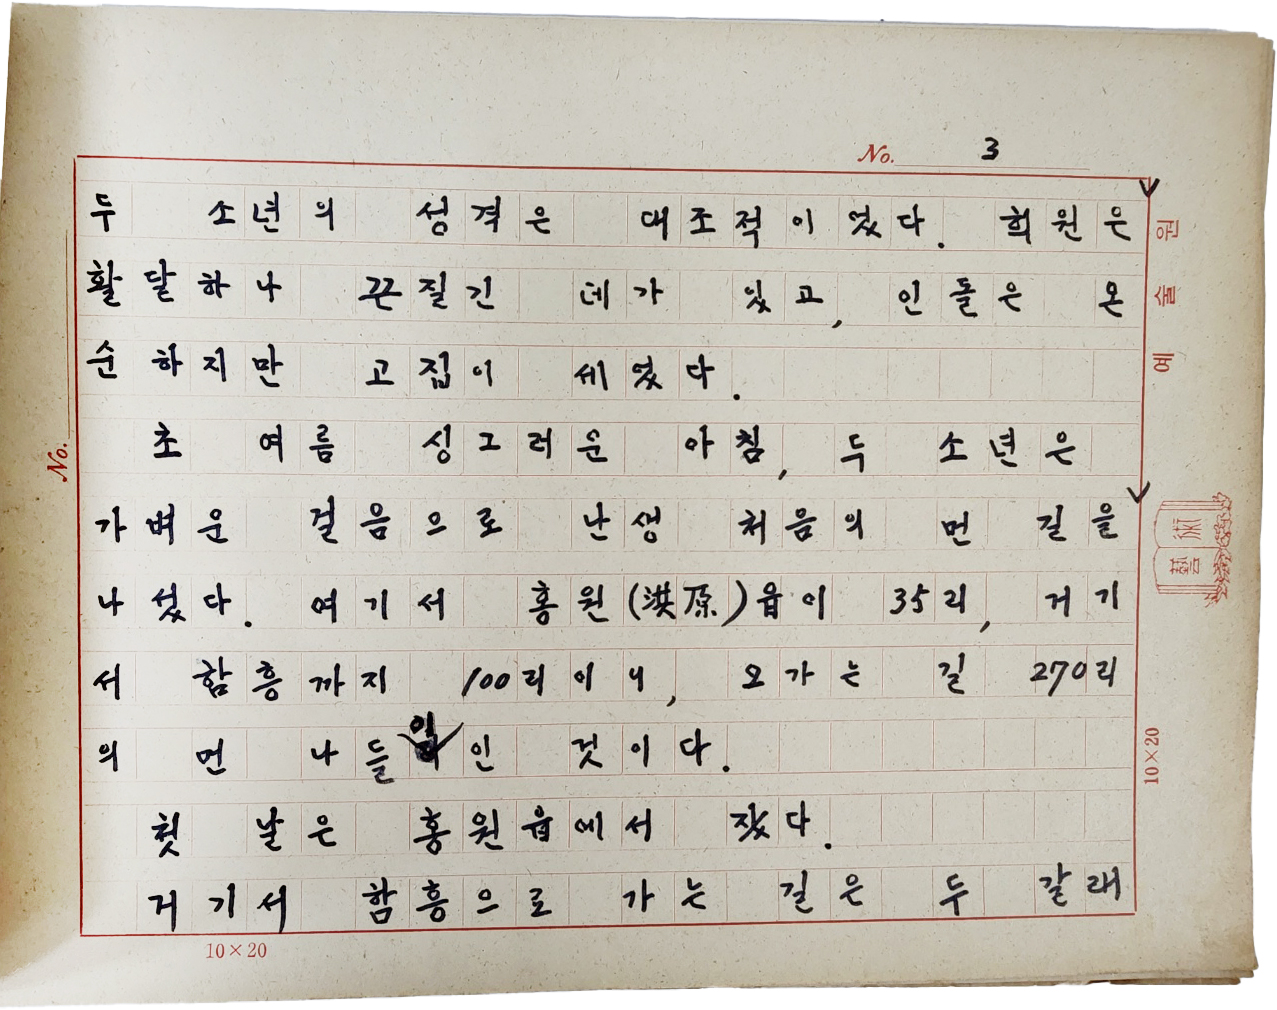 No. 3
두 소년의 성격은 대조적이었다. 희원은
활달하나 끈질긴 데가 있고, 인돌은 온
순하지만 고집이 세었다.
초여름 싱그러운 아침, 두 소년은
가벼운 걸음으로 난생 처음의 먼 길을
나섰다. 여기서 홍원(洪原)읍이 35리, 거기
서 함흥까지 100리이니, 오가는 길 270리
의 먼 나들이인 것이다.
첫 날은 홍원읍에서 잤다.
거기서 함흥으로 가는 길은 두 갈래
10×20
No.
예술원
藝術
10×20